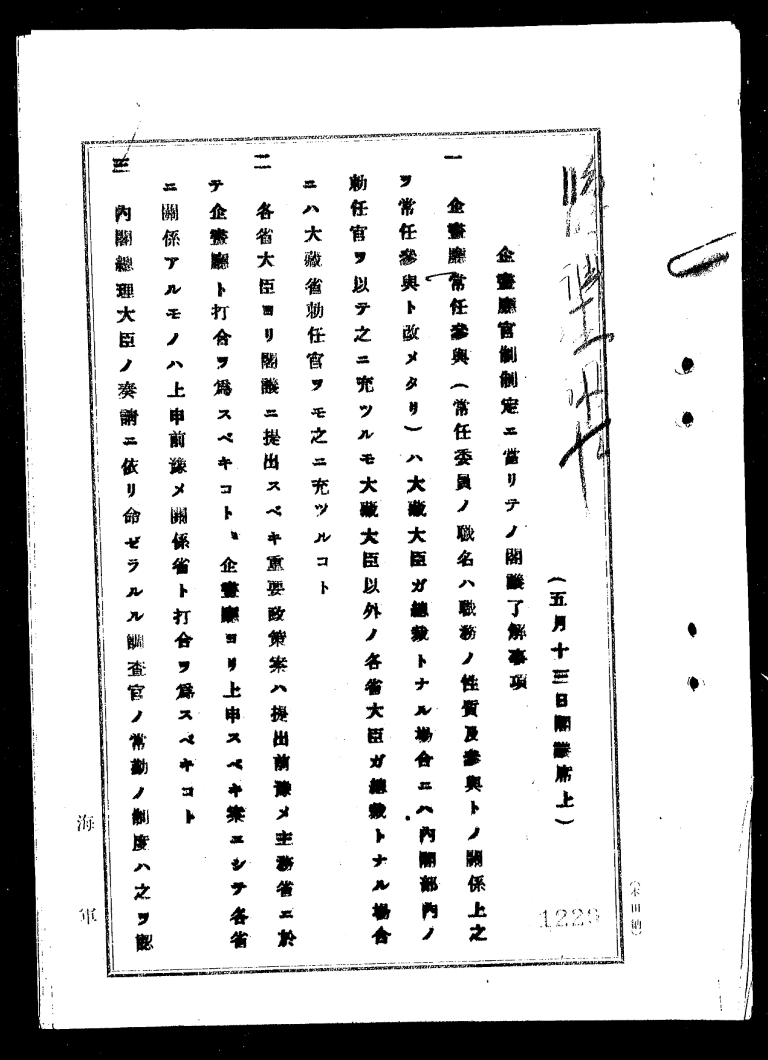 (五月十三日閣議席上)
企畫廳官制制定ニ當リテノ閣議了解事項
一 企畫廳常任參與(常任委員ノ職名ハ職務ノ性質及參與トノ關係上之
ヲ常任參與ト改メタリ)ハ大藏大臣ガ總裁トナル場合ニハ內閣部內ノ
勅任官ヲ以テ之ニ充ツルモ大藏大臣以外ノ各省大臣ガ總裁トナル場合
ニハ大藏省勅任官ヲモ之ニ充ツルコト
二 各省大臣ヨリ閣議ニ提出スベキ重要政策案ハ提出前豫メ主務省ニ於
テ企畫廳ト打合ヲ爲スベキコト、企畫廳ヨリ上申スベキ案ニシテ各省
ニ關係アルモノハ上申前豫メ關係省ト打合ヲ爲スベキコト
三 內閣總理大臣ノ奏請ニ依リ命ゼラルル調査官ノ常勤ノ制度ハ之ヲ認
海軍
1229